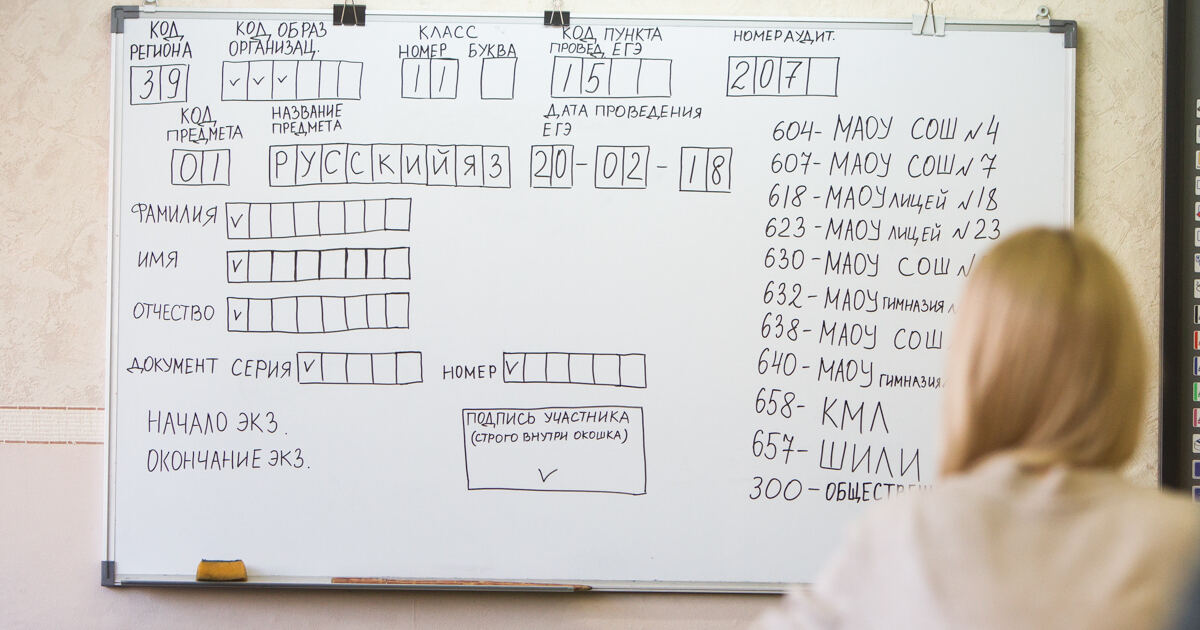 КОД РЕГИОНА
39
КОД ОБРАЗ ОРГАНИЗАЦ.
КЛАСС
НОМЕР БУКВА
11
КОД ПУНКТА
ПРОВЕД. ЕГЭ
15
НОМЕР АУДИТ.
207
КОД ПРЕДМЕТА
01
НАЗВАНИЕ ПРЕДМЕТА
РУССКИЙ ЯЗ
ДАТА ПРОВЕДЕНИЯ
ЕГЭ
20-02-18
ФАМИЛИЯ
ИМЯ
ОТЧЕСТВО
ДОКУМЕНТ СЕРИЯ
НОМЕР
НАЧАЛО ЭКЗ.
ОКОНЧАНИЕ ЭКЗ.
ПОДПИСЬ УЧАСТНИКА
(СТРОГО ВНУТРИ ОКОШКА)
604- МАОУ СОШ N 4
607- МАОУ СОШ N 7
618- МАОУ ЛИЦЕЙ N 18
623- МАОУ ЛИЦЕЙ N 23
630- МАОУ СОШ N
632- МАОУ ГИМНАЗИЯ
638- МАОУ СОШ
640- МАОУ ГИМНАЗИЯ
658- КМЛ
657- ШИЛИ
300-